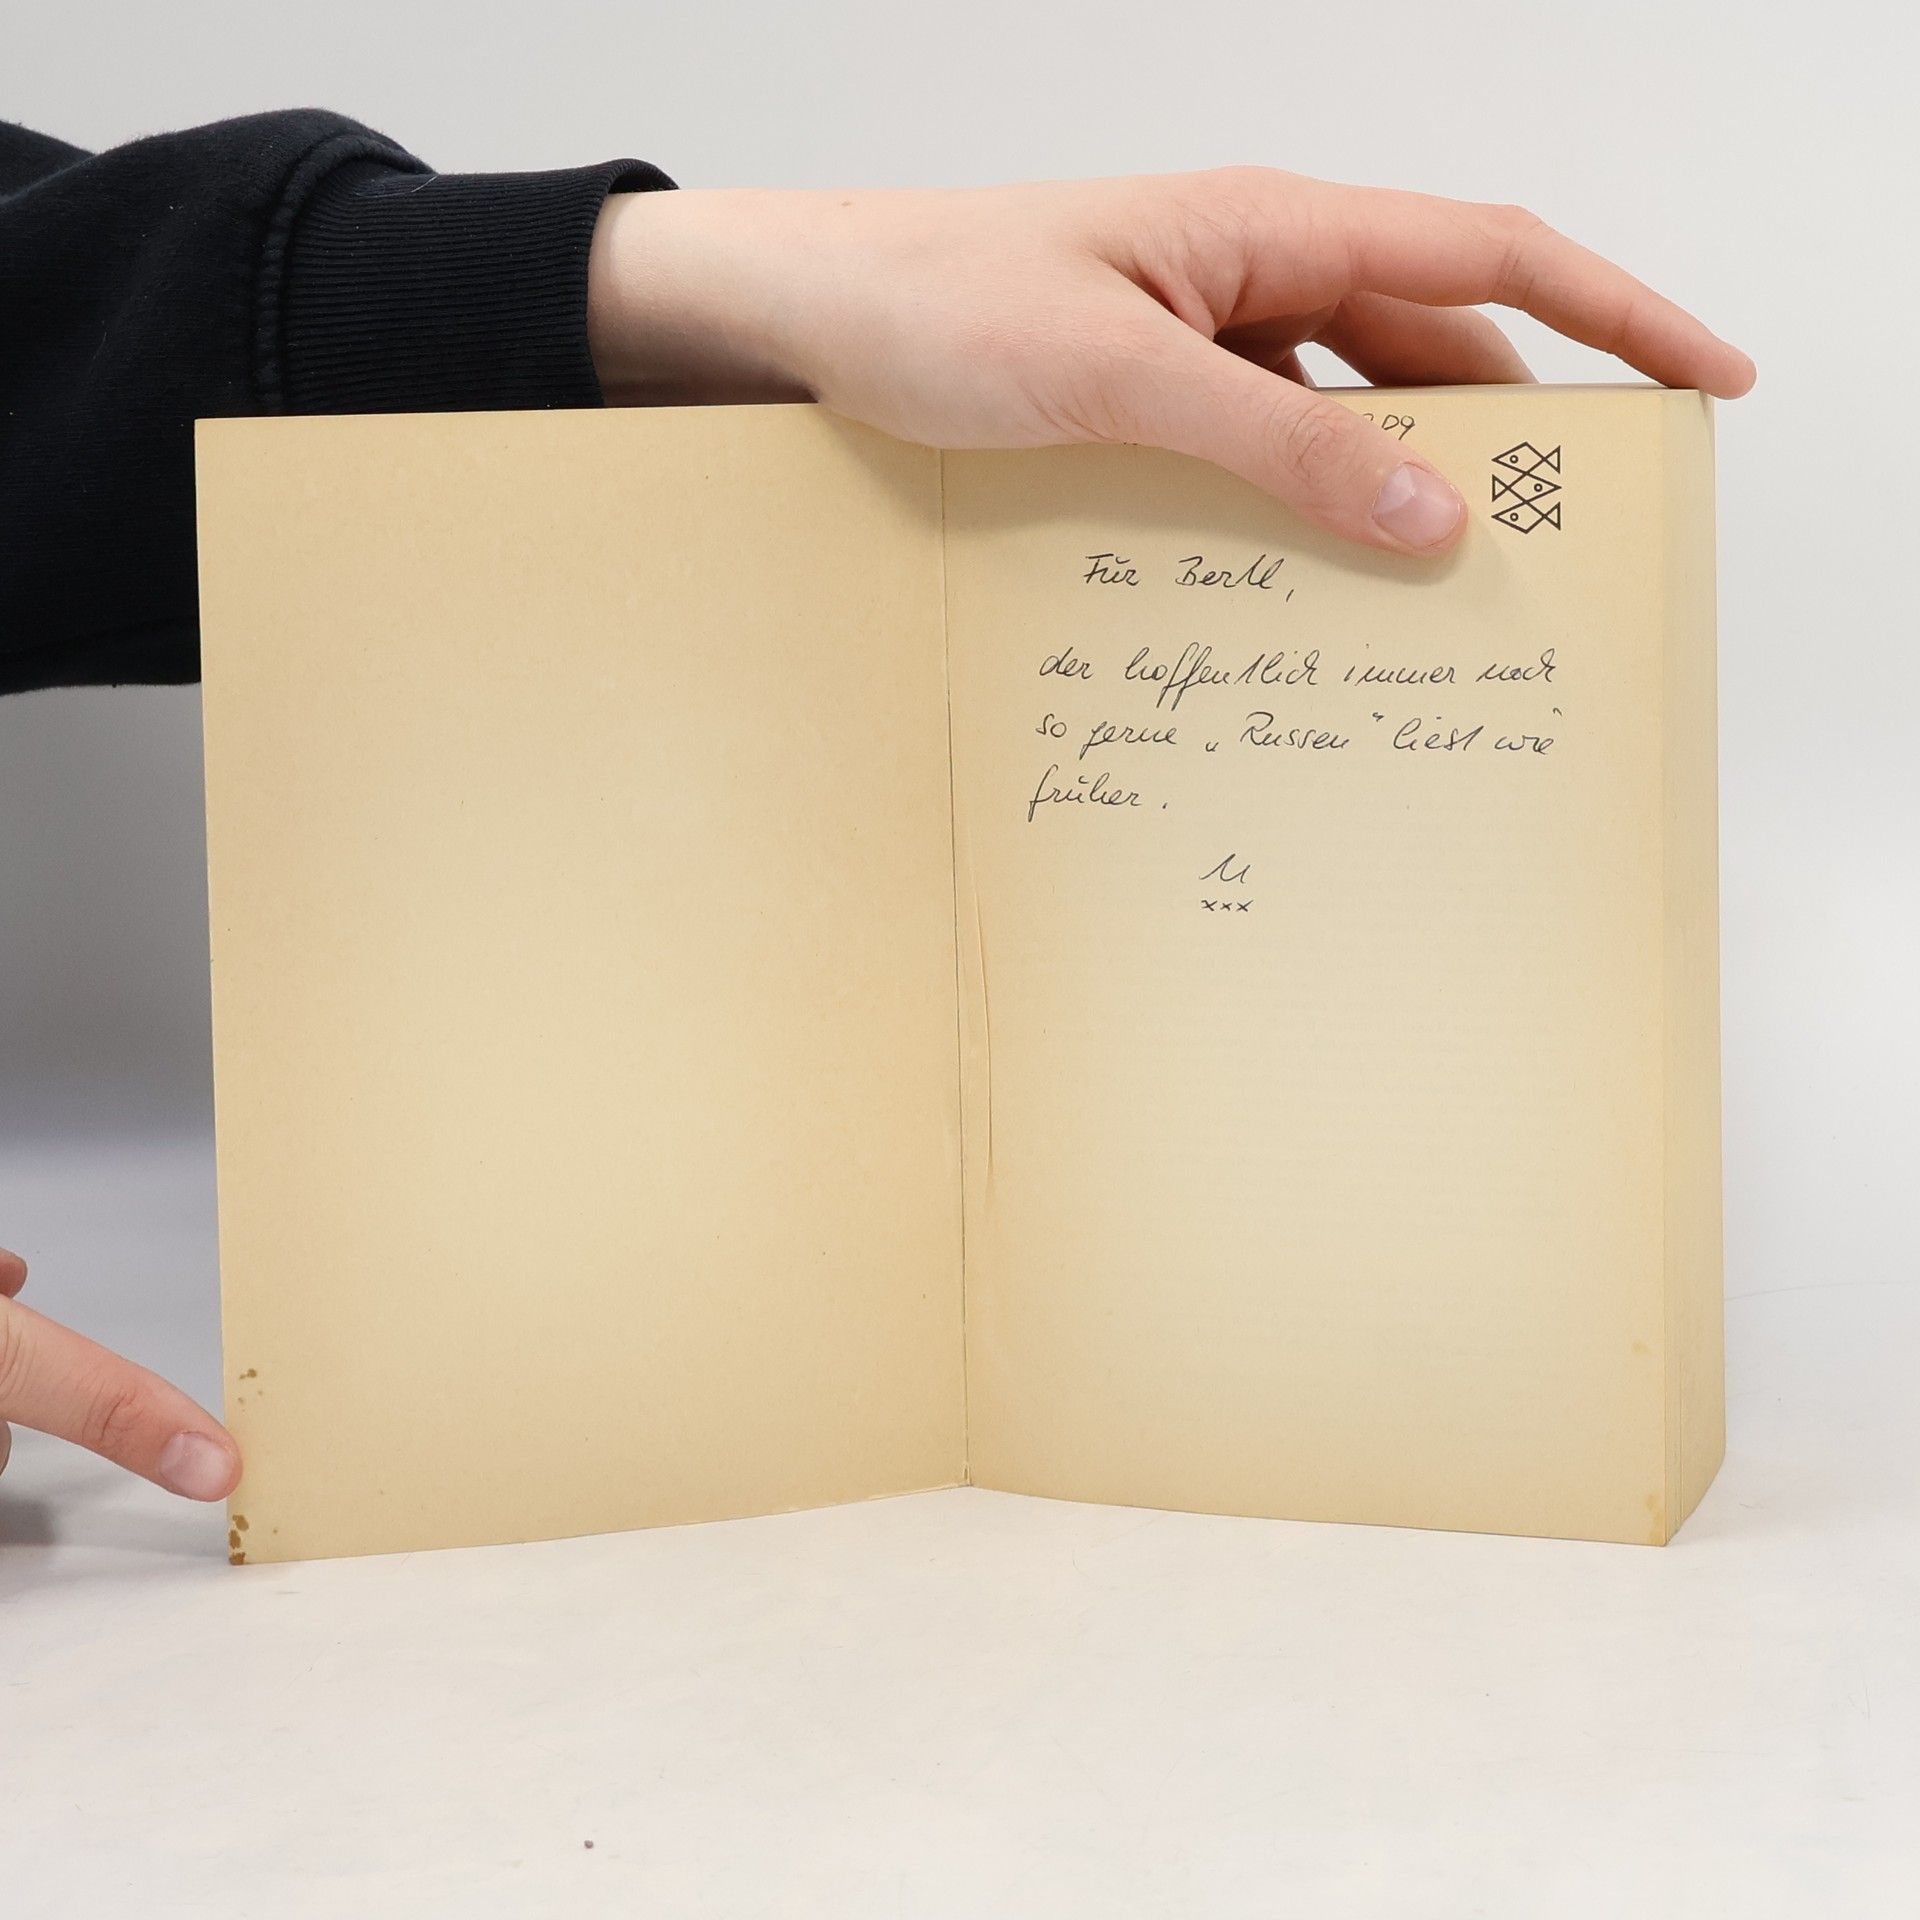 D9
Für Bertl,
der hoffentlich immer noch
so gerne „Russen“ liest wie
früher.
U
xxx